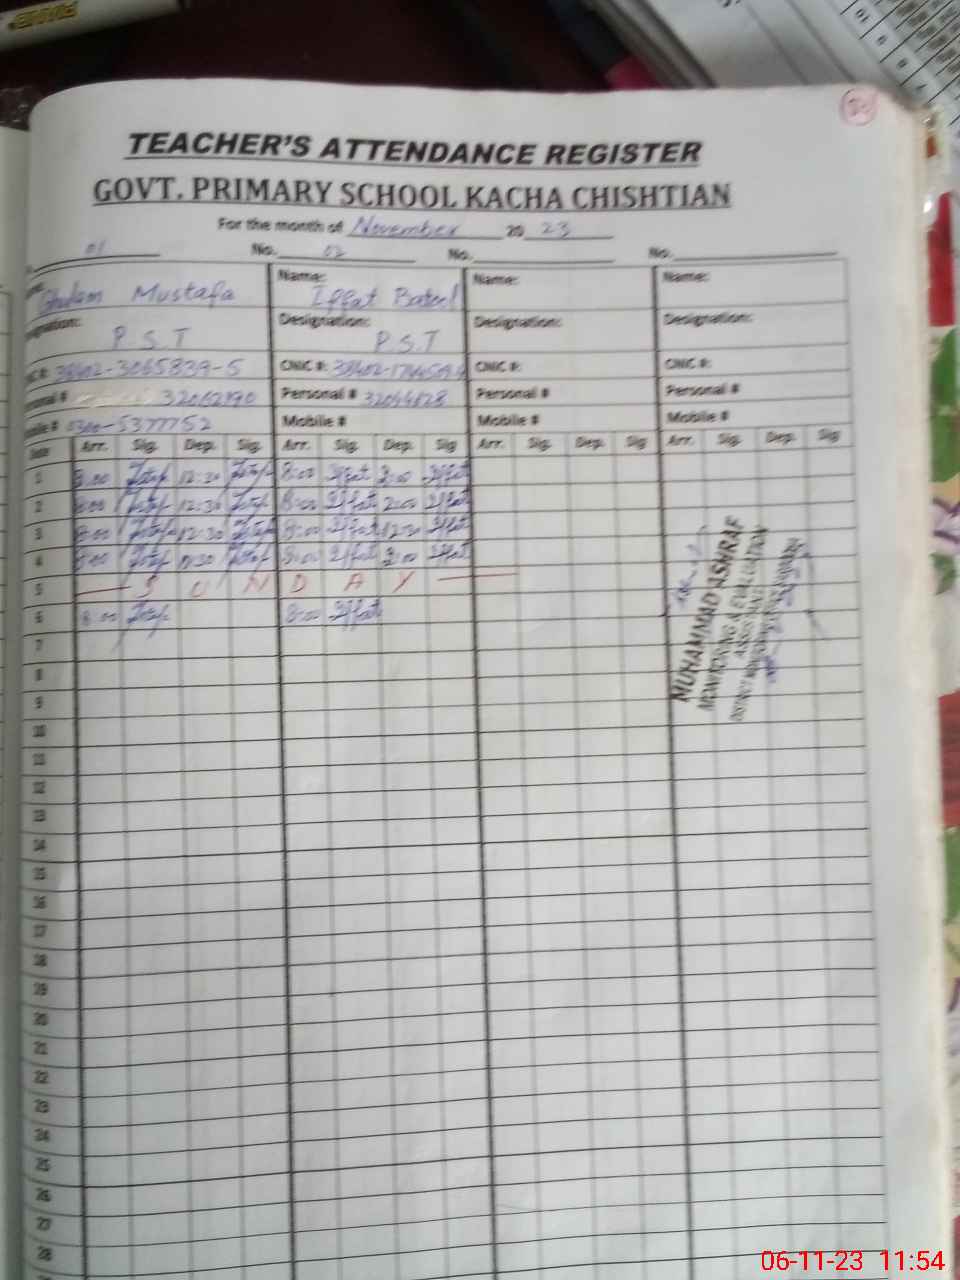 TEACHER'S ATTENDANCE REGISTER
GOVT. PRIMARY SCHOOL KACHA CHISHTIAN
For the month of November 20 23
01 No. 02 No. No.
Ghulam Mustafa Name: Iffat Batool Name: Name:
P.S.T Designation: P.S.T Designation: Designation:
38402-3065839-5 CNIC #: CNIC #: CNIC #:
Personal # Personal # Personal #
0300-5377752 Mobile # Mobile # Mobile #
Date Arr. Sig. Dep. Sig. Arr. Sig. Dep. Sig Arr. Sig. Dep. Sig Arr. Sig. Dep. Sig
1 8:00 12:30 8:00 Iffat 2:00 Iffat
2 8:00 12:30 8:00 Iffat 2:00 Iffat
3 8:00 12:30 8:00 Iffat 12:30 Iffat
4 8:00 8:00 Iffat 2:00 Iffat
5 S U N D A Y
6 8:00 8:00 Iffat
7
8
9
10
11
12
13
14
15
16
17
18
19
20
21
22
23
24
25
26
27
28
MUHAMMAD ASHRAF
MONITORING & EVALUATION
ASSISTANT
06-11-23 11:54